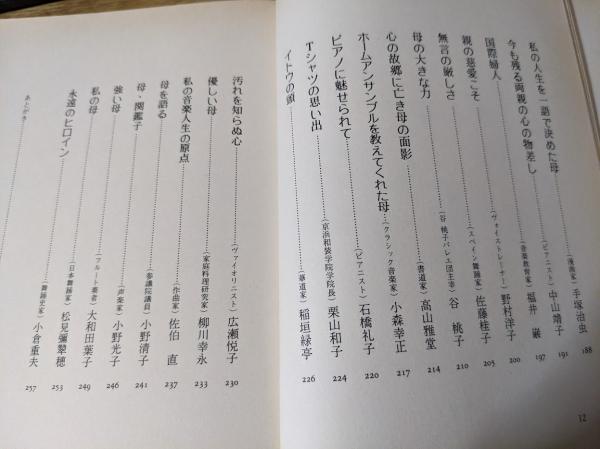 私の人生を一語で決めた母……(漫画家)手塚治虫 188
今も残る両親の心の物差し……(ピアニスト)中山靖子 191
国際婦人……(音楽教育家)福井 巌 197
親の慈愛こそ……(ヴォイストレーナー)野村洋子 200
無言の厳しさ……(スペイン舞踊家)佐藤桂子 205
母の大きな力……(谷 桃子バレエ団主宰)谷 桃子 210
心の故郷に亡き母の面影……(書道家)高山雅堂 214
ホームアンサンブルを教えてくれた母……(クラシック音楽家)小森幸正 217
ピアノに魅せられて……(ピアニスト)石橋礼子 220
Tシャツの思い出……(京浜和装学院学院長)栗山和子 224
イトウの頭……(華道家)稲垣緑亭 226
12
汚れを知らぬ心……(ヴァイオリニスト)広瀬悦子 230
優しい母……(家庭料理研究家)柳川幸永 233
私の音楽人生の原点……(作曲家)佐伯 直 237
母を語る……(参議院議員)小野清子 241
母・関鑑子……(声楽家)小野光子 246
強い母……(フルート奏者)大和田葉子 249
私の母……(日本舞踊家)松見彌翠穂 253
永遠のヒロイン……(舞踊史家)小倉重夫 257
あとがき……